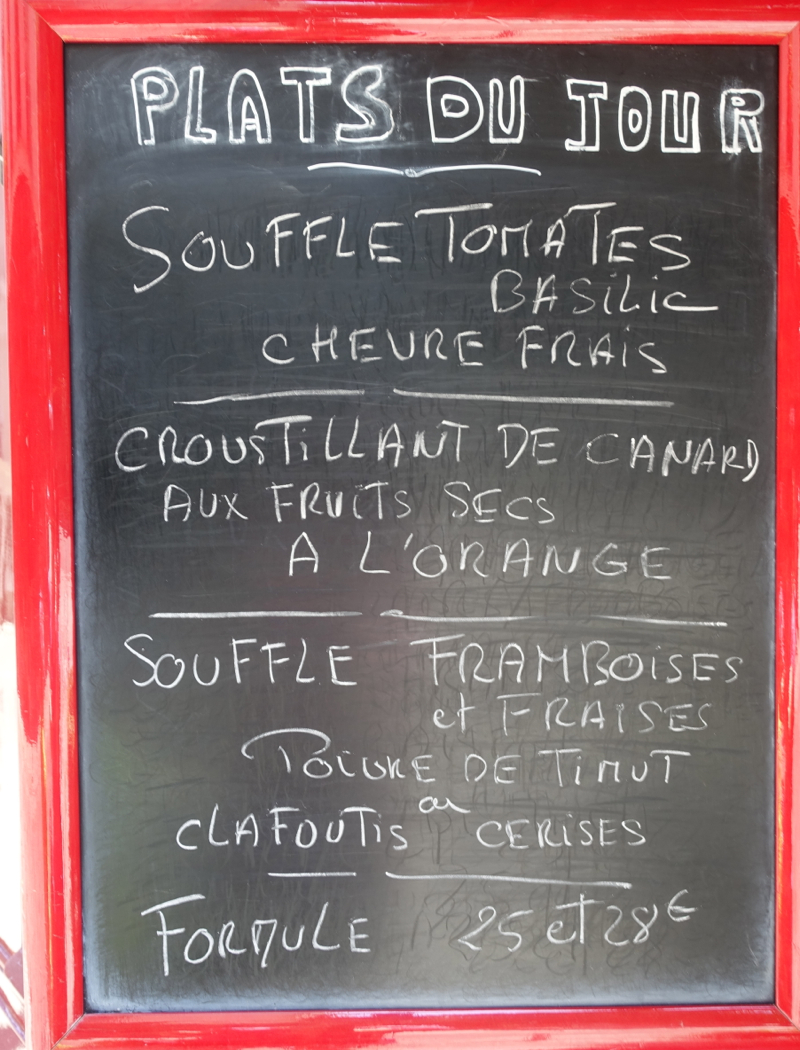 PLATS DU JOUR
SOUFFLE TOMATES
BASILIC
CHEVRE FRAIS
CROUSTILLANT DE CANARD
AUX FRUITS SECS
A L'ORANGE
SOUFFLE FRAMBOISES
et FRAISES
POIVRE DE TIMUT
ou
CLAFOUTIS CERISES
FORMULE 25 et 28€